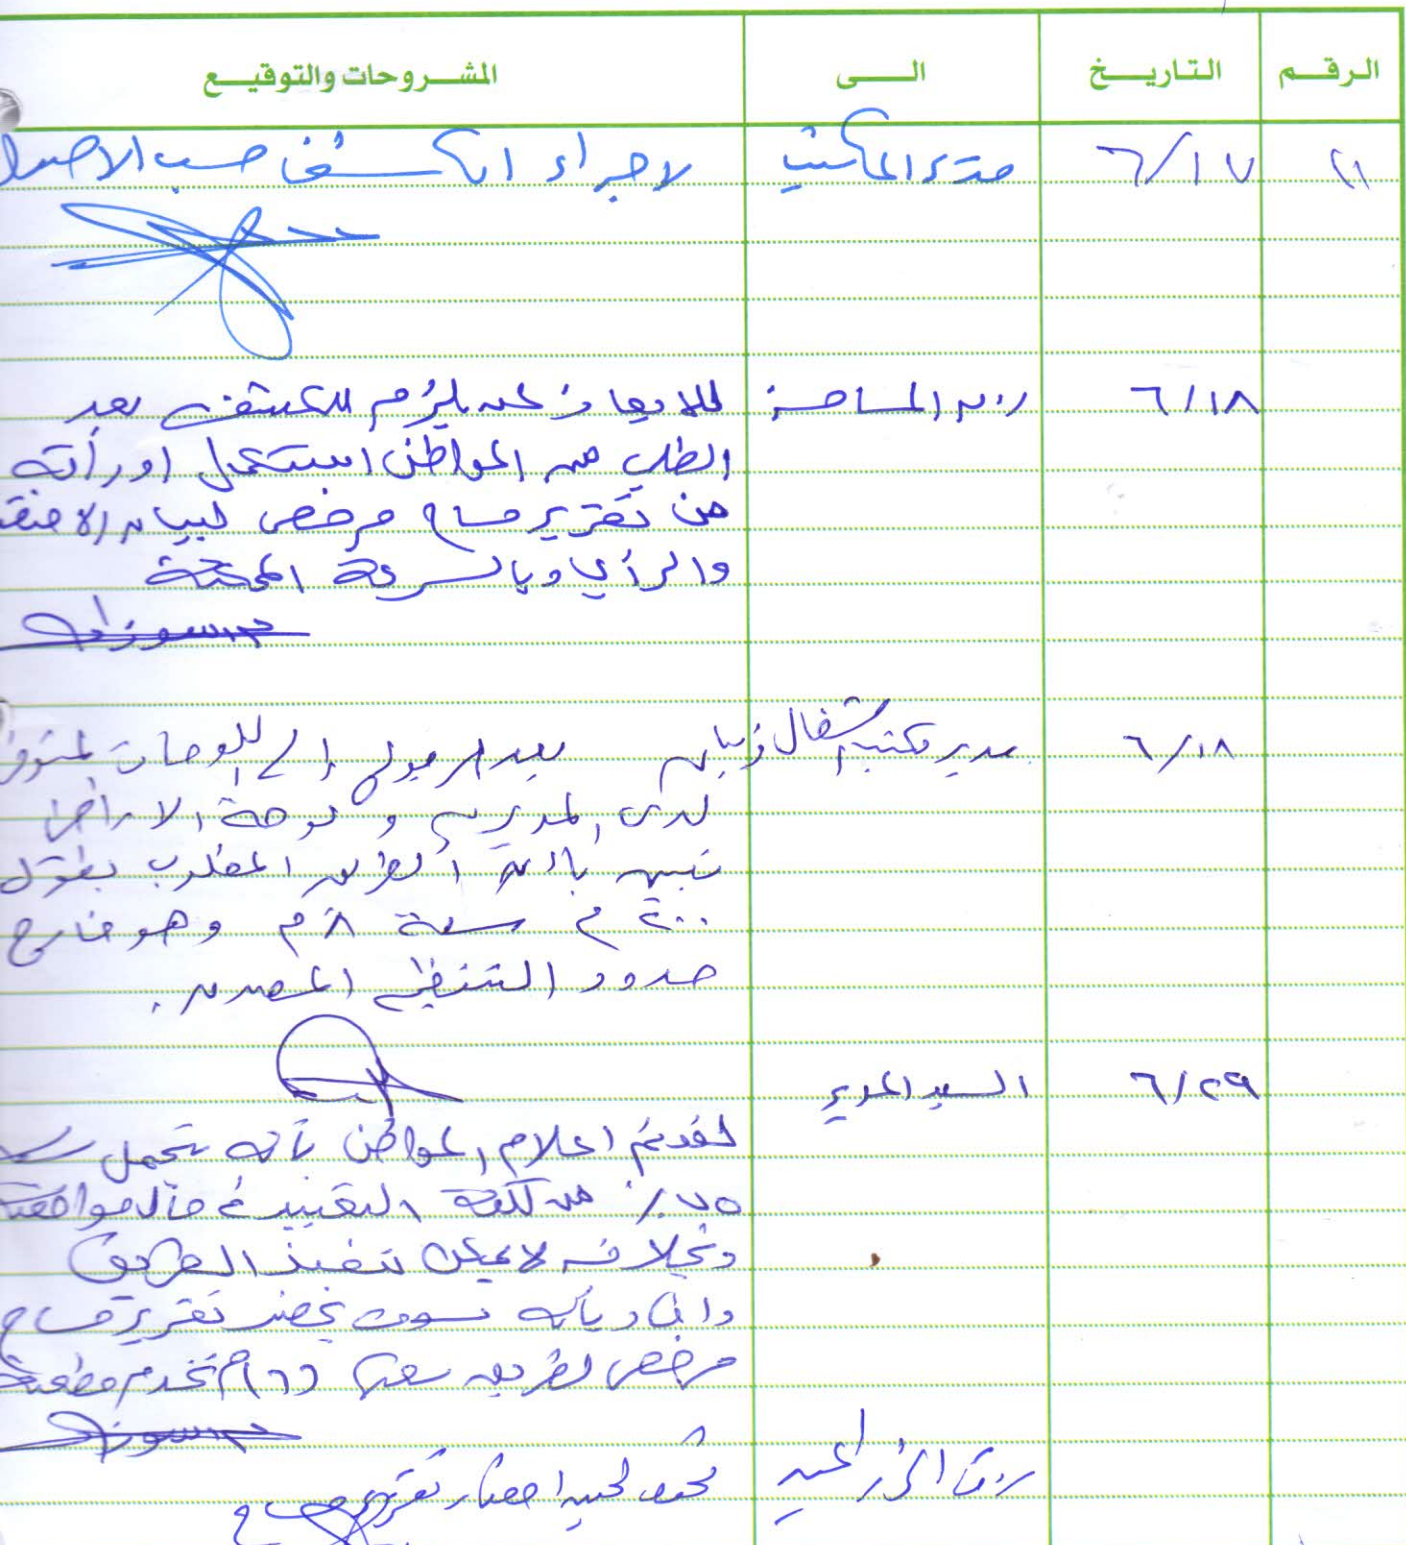 الرقم التاريخ الى المشروحات والتوقيع
٢١ ٦/١٧ مدير المكتب لاجراء الكشف حسب الاصول
٦/١٨ رئيس المساحة للايعاز لمن يلزم للكشف بعد
الطلب من المواطن استكمال اوراقه
من تقرير مساح مرخص لبيان الاحقية
والرأي وبالسرعة الممكنة
٦/١٨ مدير مكتب اشغال ذيبان بعد الرجوع الى اللوحات المتوفرة
لدى المديرية ولوحة الاراضي
تبين بأن الطريق المطلوب بطول
٢٠٠ م سعة ٨ م وهو خارج
حدود التنظيم
٦/٢٩ السيد المدير
لقد تم اعلام المواطن بأنه يتحمل
٧٥٪ من كلفة التعبيد في حال موافقة
وبخلافه لا يمكن تنفيذ الطريق
وافاد بأنه سوف يحضر تقرير مساح
مرخص لطريق سعة (٦) م تخدم قطعة
تقرير مساح